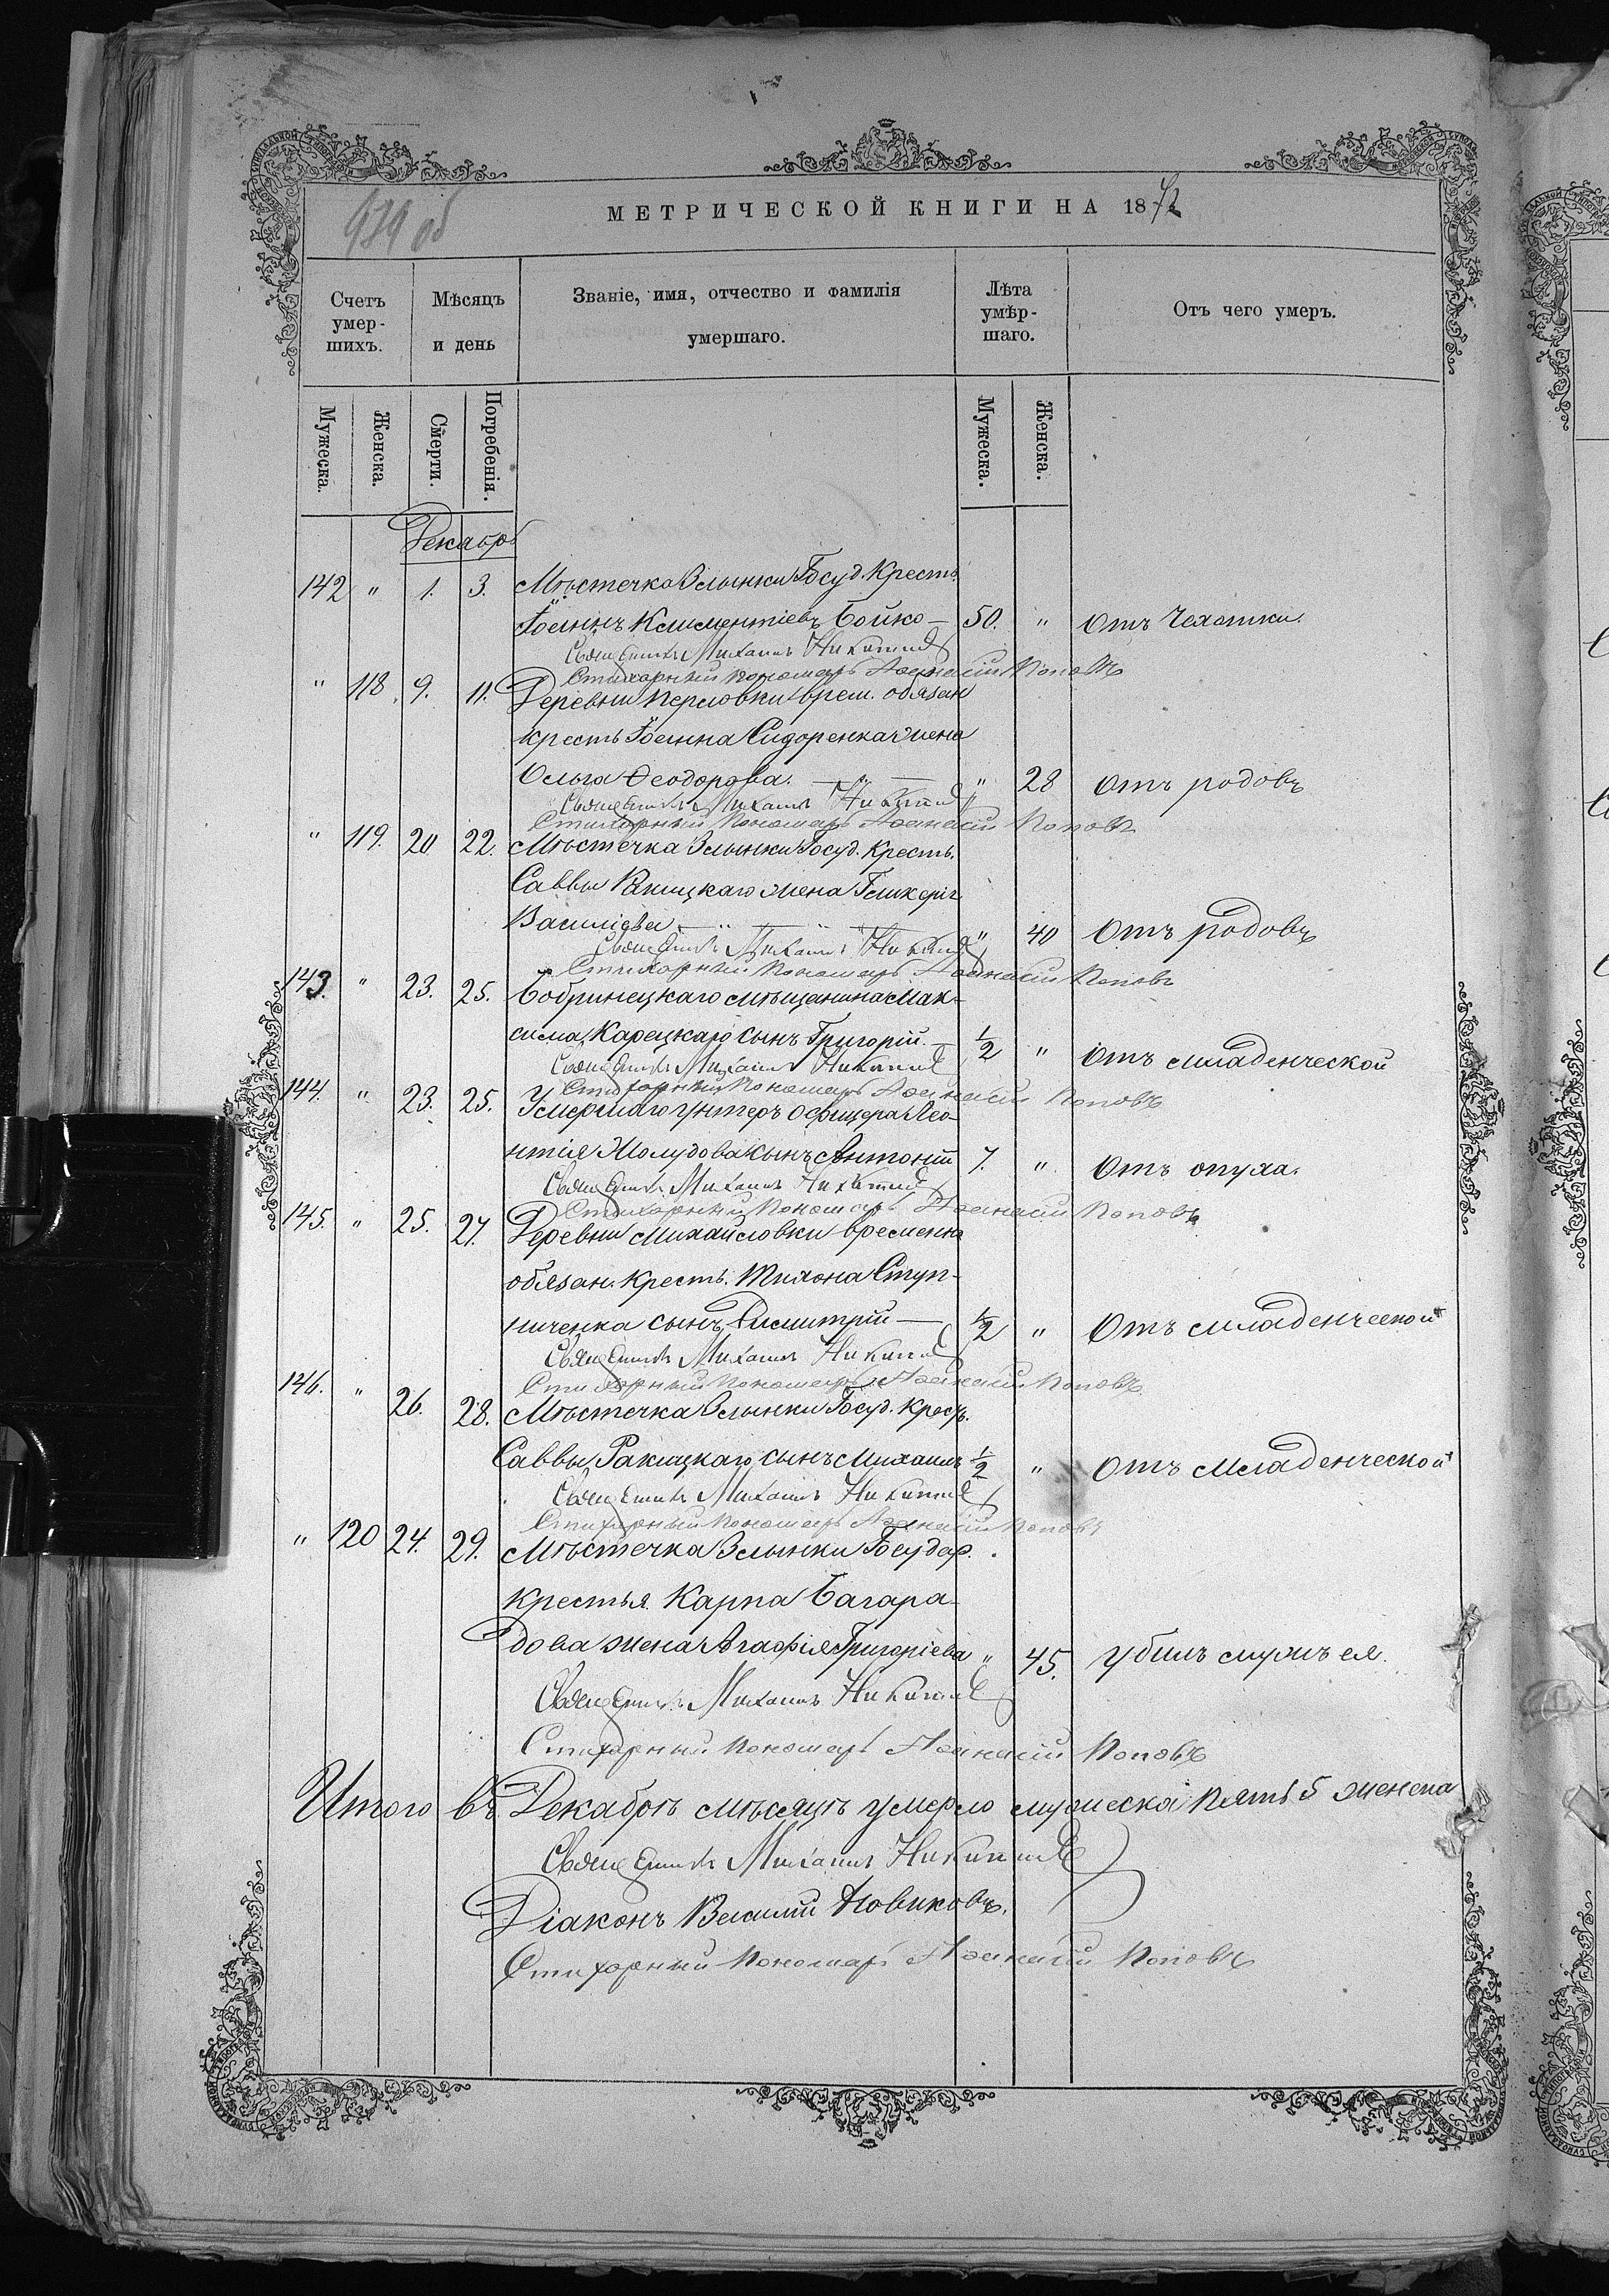 439 об
МЕТРИЧЕСКОЙ КНИГИ НА 1872
Счетъ умер-шихъ.
Мѣсяцъ и день
Званіе, имя, отчество и фамилія умершаго.
Лѣта умѣр-шаго.
Отъ чего умеръ.
Мужеска.
Женска.
Смерти.
Погребенія.
Мужеска.
Женска.
Декабрь
142 " 1. 3. Мѣстечка Злынки Госуд. Кресть.
Іоаннъ Климентіевъ Бойко — 50. " Отъ Чахотки.
Священникъ Михаилъ Никитинъ
Стихарный Пономарь Аѳанасій Поповъ
" 118. 9. 11. Деревни Перловки врем. обязан
кресть Іоанна Сидоренка жена
Ольга Ѳеодорова. — " — " 28 Отъ родовъ
Священникъ Михаилъ Никитинъ
Стихарный Пономарь Аѳанасій Поповъ
" 119. 20 22. Мѣстечка Злынки Госуд. Кресть.
Саввы Ракицкаго жена Гликерія
Василіева — " — " — " 40 Отъ родовъ
Священникъ Михаилъ Никитинъ
Стихарный Пономарь Аѳанасій Поповъ
143. " 23. 25. Бобринецкаго мѣщанина Мак-
сима Карецкаго сынъ Григорій. — 1/2 " Отъ младенческой
Священникъ Михаилъ Никитинъ
Стихарный Пономарь Аѳанасій Поповъ
144. " 23. 25. Умершаго унтеръ офицера Лео-
нтія Жолудова сынъ Антоній 7. " Отъ опуха.
Священникъ Михаилъ Никитинъ
Стихарный Пономарь Аѳанасій Поповъ
145. " 25. 27. Деревни Михайловки временно
обязан. кресть. Тихона Ступ-
ниченка сынъ Димитрій — 1/2 " Отъ младенческой
Священникъ Михаилъ Никитинъ
Стихарный Пономарь Аѳанасій Поповъ
146. " 26. 28. Мѣстечка Злынки Госуд. Крест.
Саввы Ракицкаго сынъ Михаилъ 1/2 " Отъ младенческой
Священникъ Михаилъ Никитинъ
Стихарный Пономарь Аѳанасій Поповъ
" 120 24. 29. Мѣстечка Злынки Государ.
крестья. Карпа Багара-
дова жена Агафія Григоріева " 45. Убилъ мужъ ея.
Священникъ Михаилъ Никитинъ
Стихарный Пономарь Аѳанасій Поповъ
Итого въ Декабрѣ мѣсяцѣ умерло мужеска пять 5 женска
Священникъ Михаилъ Никитинъ
Діаконъ Василій Новиковъ.
Стихарный Пономарь Аѳанасій Поповъ